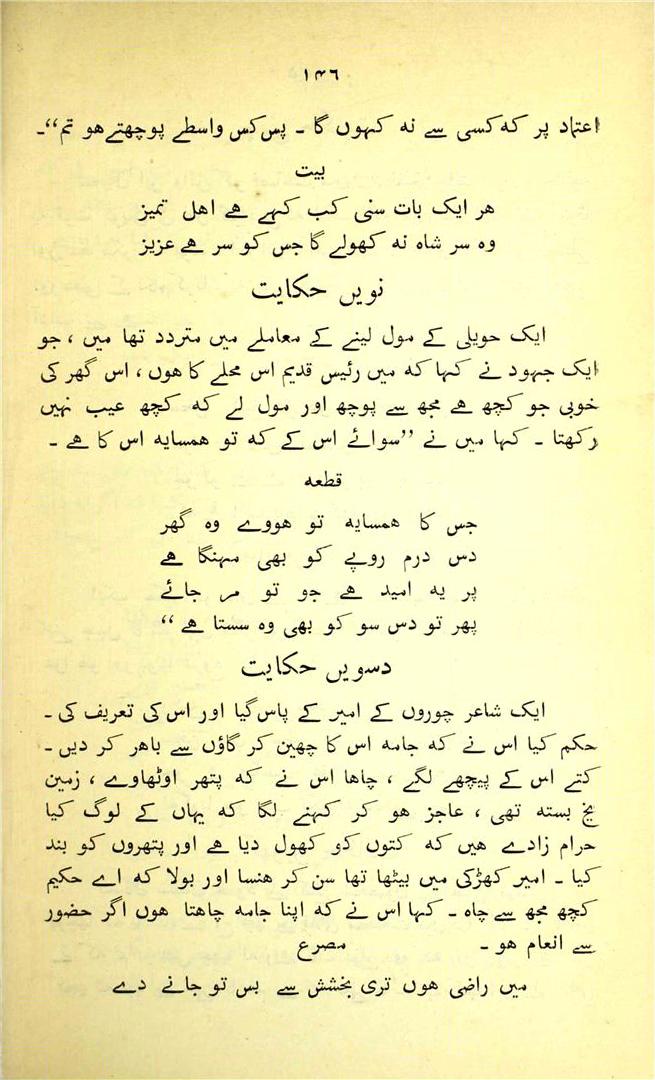 ۱۴۶
اعتماد پر کہ کسی سے نہ کہوں گا ۔ پس کس واسطے پوچھتے ہو تم“۔
بیت
ہر ایک بات سنی کب کہے ہے اہل تمیز
وہ سر شاہ نہ کھولے گا جس کو سر ہے عزیز
نویں حکایت
ایک حویلی کے مول لینے کے معاملے میں متردد تھا میں ، جو
ایک جہود نے کہا کہ میں رئیس قدیم اس محلے کا ہوں ، اس گھر کی
خوبی جو کچھ ہے مجھ سے پوچھ اور مول لے کہ کچھ عیب نہیں
رکھتا ۔ کہا میں نے ”سوائے اس کے کہ تو ہمسایہ اس کا ہے ۔
قطعہ
جس کا ہمسایہ تو ہووے وہ گھر
دس درم روپے کو بھی مہنگا ہے
پر یہ امید ہے جو تو مر جائے
پھر تو دس سو کو بھی وہ سستا ہے “
دسویں حکایت
ایک شاعر چوروں کے امیر کے پاس گیا اور اس کی تعریف کی ۔
حکم کیا اس نے کہ جامہ اس کا چھین کر گاؤں سے باہر کر دیں ۔
کتے اس کے پیچھے لگے ، چاہا اس نے کہ پتھر اوٹھاوے ، زمین
یخ بستہ تھی ، عاجز ہو کر کہنے لگا کہ یہاں کے لوگ کیا
حرام زادے ہیں کہ کتوں کو کھول دیا ہے اور پتھروں کو بند
کیا ۔ امیر کھڑکی میں بیٹھا تھا سن کر ہنسا اور بولا کہ اے حکیم
کچھ مجھ سے چاہ ۔ کہا اس نے کہ اپنا جامہ چاہتا ہوں اگر حضور
سے انعام ہو ۔ مصرع
میں راضی ہوں تری بخشش سے بس تو جانے دے